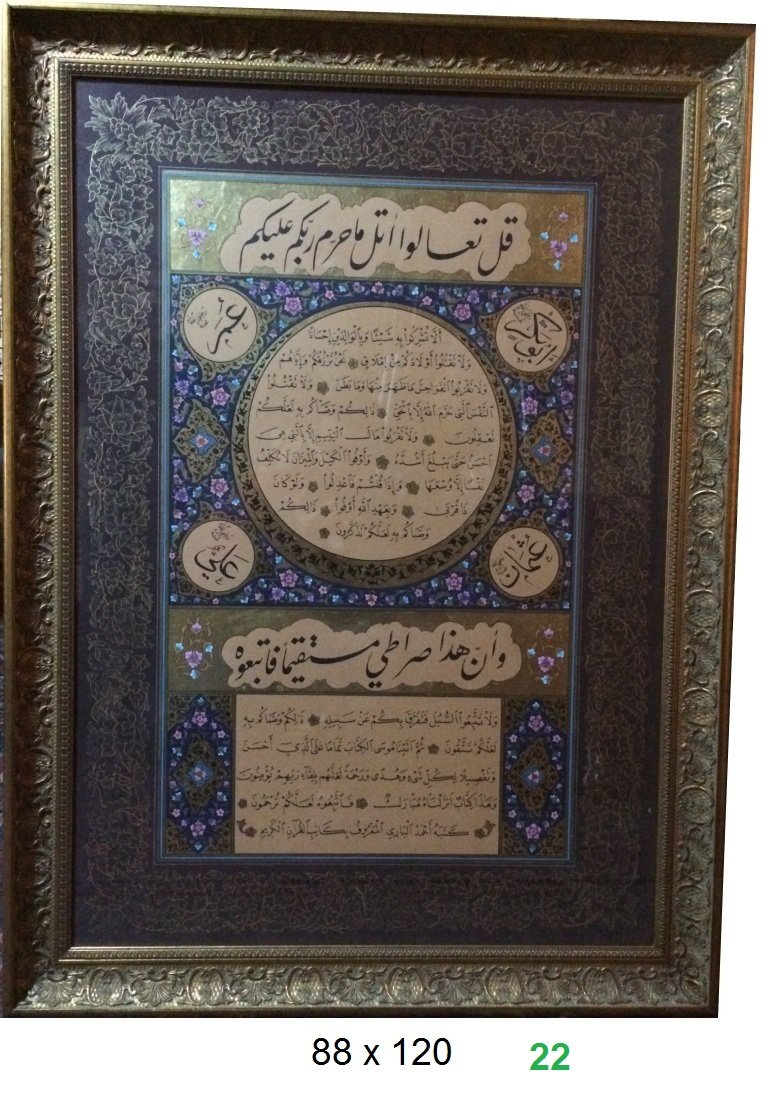 قل تعالوا أتل ما حرم ربكم عليكم
أبو بكر
عمر
ألا تشركوا به شيئا وبالوالدين إحسانا
ولا تقتلوا أولادكم من إملاق نحن نرزقكم وإياهم
ولا تقربوا الفواحش ما ظهر منها وما بطن ولا تقتلوا
النفس التي حرم الله إلا بالحق ذالكم وصاكم به لعلكم
تعقلون ولا تقربوا مال اليتيم إلا بالتي هي
احسن حتى يبلغ أشده وأوفوا الكيل والميزان لا نكلف
نفسا إلا وسعها وإذا قلتم فاعدلوا ولو كان
ذا قربى وبعهد الله أوفوا ذالكم
وصاكم به لعلكم تذكرون
عثمان
علي
وأن هذا صراطي مستقيما فاتبعوه
ولا تتبعوا السبل فتفرق بكم عن سبيله ذالكم وصاكم به
لعلكم تتقون ثم آتينا موسى الكتاب تماما على الذي أحسن
وتفصيلا لكل شيء وهدى ورحمة لعلهم بلقاء ربهم يؤمنون
وهذا كتاب انزلناه مبارك فاتبعوه لعلكم ترحمون
كتبه أحمد الباري المعروف بكاتب القرآن الكريم
88 x 120
22